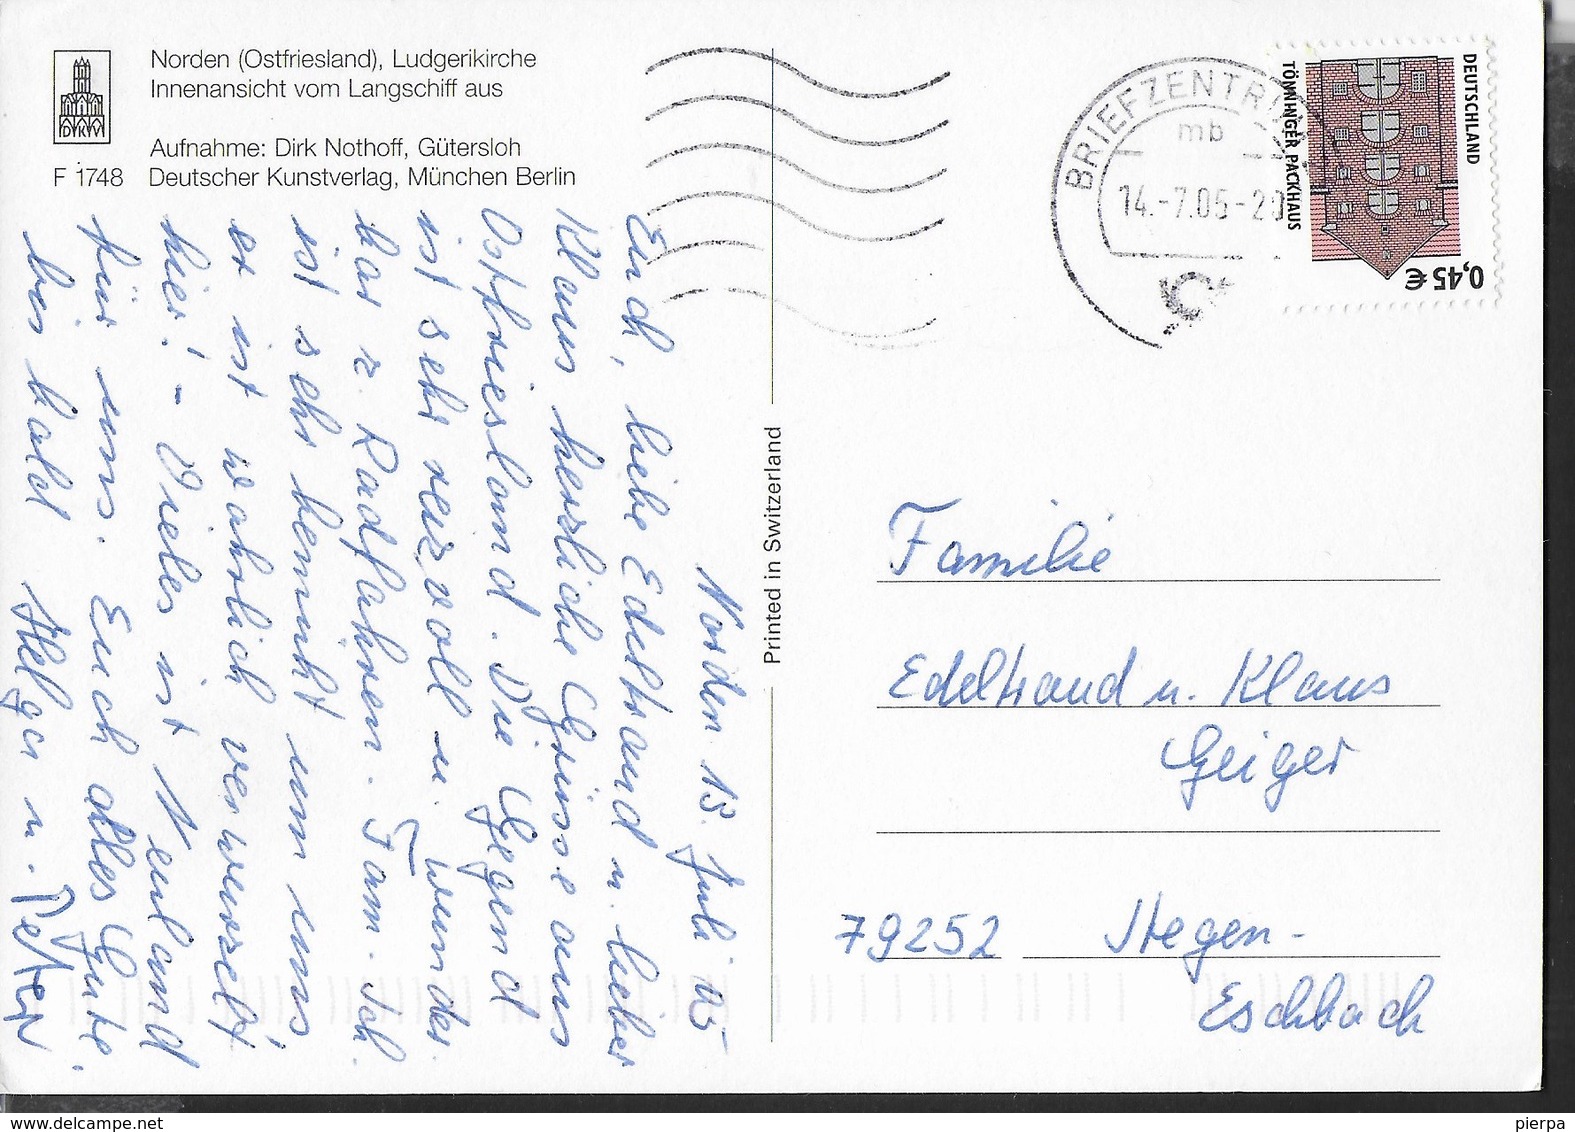 Norden (Ostfriesland), Ludgerikirche
Innenansicht vom Langschiff aus
Aufnahme: Dirk Nothoff, Gütersloh
F 1748 Deutscher Kunstverlag, München Berlin
DKV
Norden 15. Juli 05
Euch, liebe Edeltraud u. lieber
Klaus herzliche Grüsse aus
Ostfriesland. Die Gegend
ist sehr reizvoll u. wunder
bar z. Radfahren. Fam. Ich
ist sehr bemüht um uns
er ist wahrlich verwurzelt
hier! - Vieles ist Neuland
für uns. Euch alles Gute.
bis bald Helga u. Peter
Printed in Switzerland
BRIEFZENTRUM
mb
14.-7.05-20
DEUTSCHLAND
TÖNNINGER PACKHAUS
0,45€
Familie
Edeltraud u. Klaus
Geiger
79252 Stegen-
Eschbach
pierpa